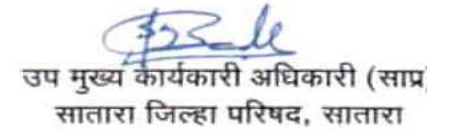 उप मुख्य कार्यकारी अधिकारी (साप्र
सातारा जिल्हा परिषद, सातारा